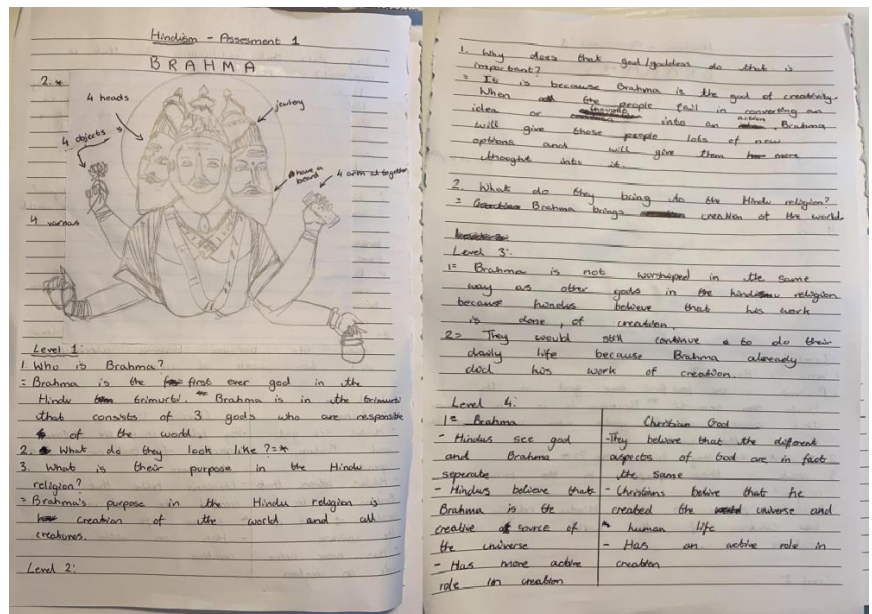 Hinduism - Assesment 1
BRAHMA
2. *
4 heads
jewlery
4 objects
have a
beard
4 arm at together
4 various
Level 1:
1. Who is Brahma?
= Brahma is the first ever god in the
Hindu trimurti. Brahma is in the trimurti
that consists of 3 gods who are responsible
of the world.
2. What do they look like? = *
3. What is their purpose in the Hindu
religion?
= Brahma's purpose in the Hindu religion is
creation of the world and all
creatures.
Level 2:
1. Why does that god/goddess do that is
important?
= It is because Brahma is the god of creativity.
When the people fail in converting an
idea or into an action, Brahma
will give those people lots of new
options and will give them more
thought into it.
2. What do they bring to the Hindu religion?
= Brahma brings creation of the world.
Level 3:
1= Brahma is not worshiped in the same
way as other gods in the hindu religion
because hindus believe that his work
is done, of creation.
2= They would still continue to do their
daily life because Brahma already
did his work of creation.
Level 4:
1= Brahma
- Hindus see god
and Brahma
seperate
- Hindus believe that
Brahma is the
creative source of
the universe
- Has more active
role in creation
Christian God
- They believe that the different
aspects of God are in fact
the same
- Christians belive that he
created the universe and
human life
- Has an active role in
creation